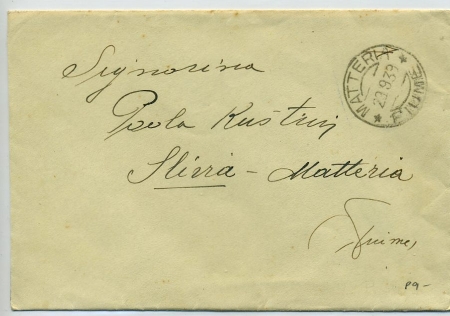 Signorina
Paola Kuštrin
Slivia - Matteria
Fiume,
MATTERIA * FIUME *
20.9.39
89-